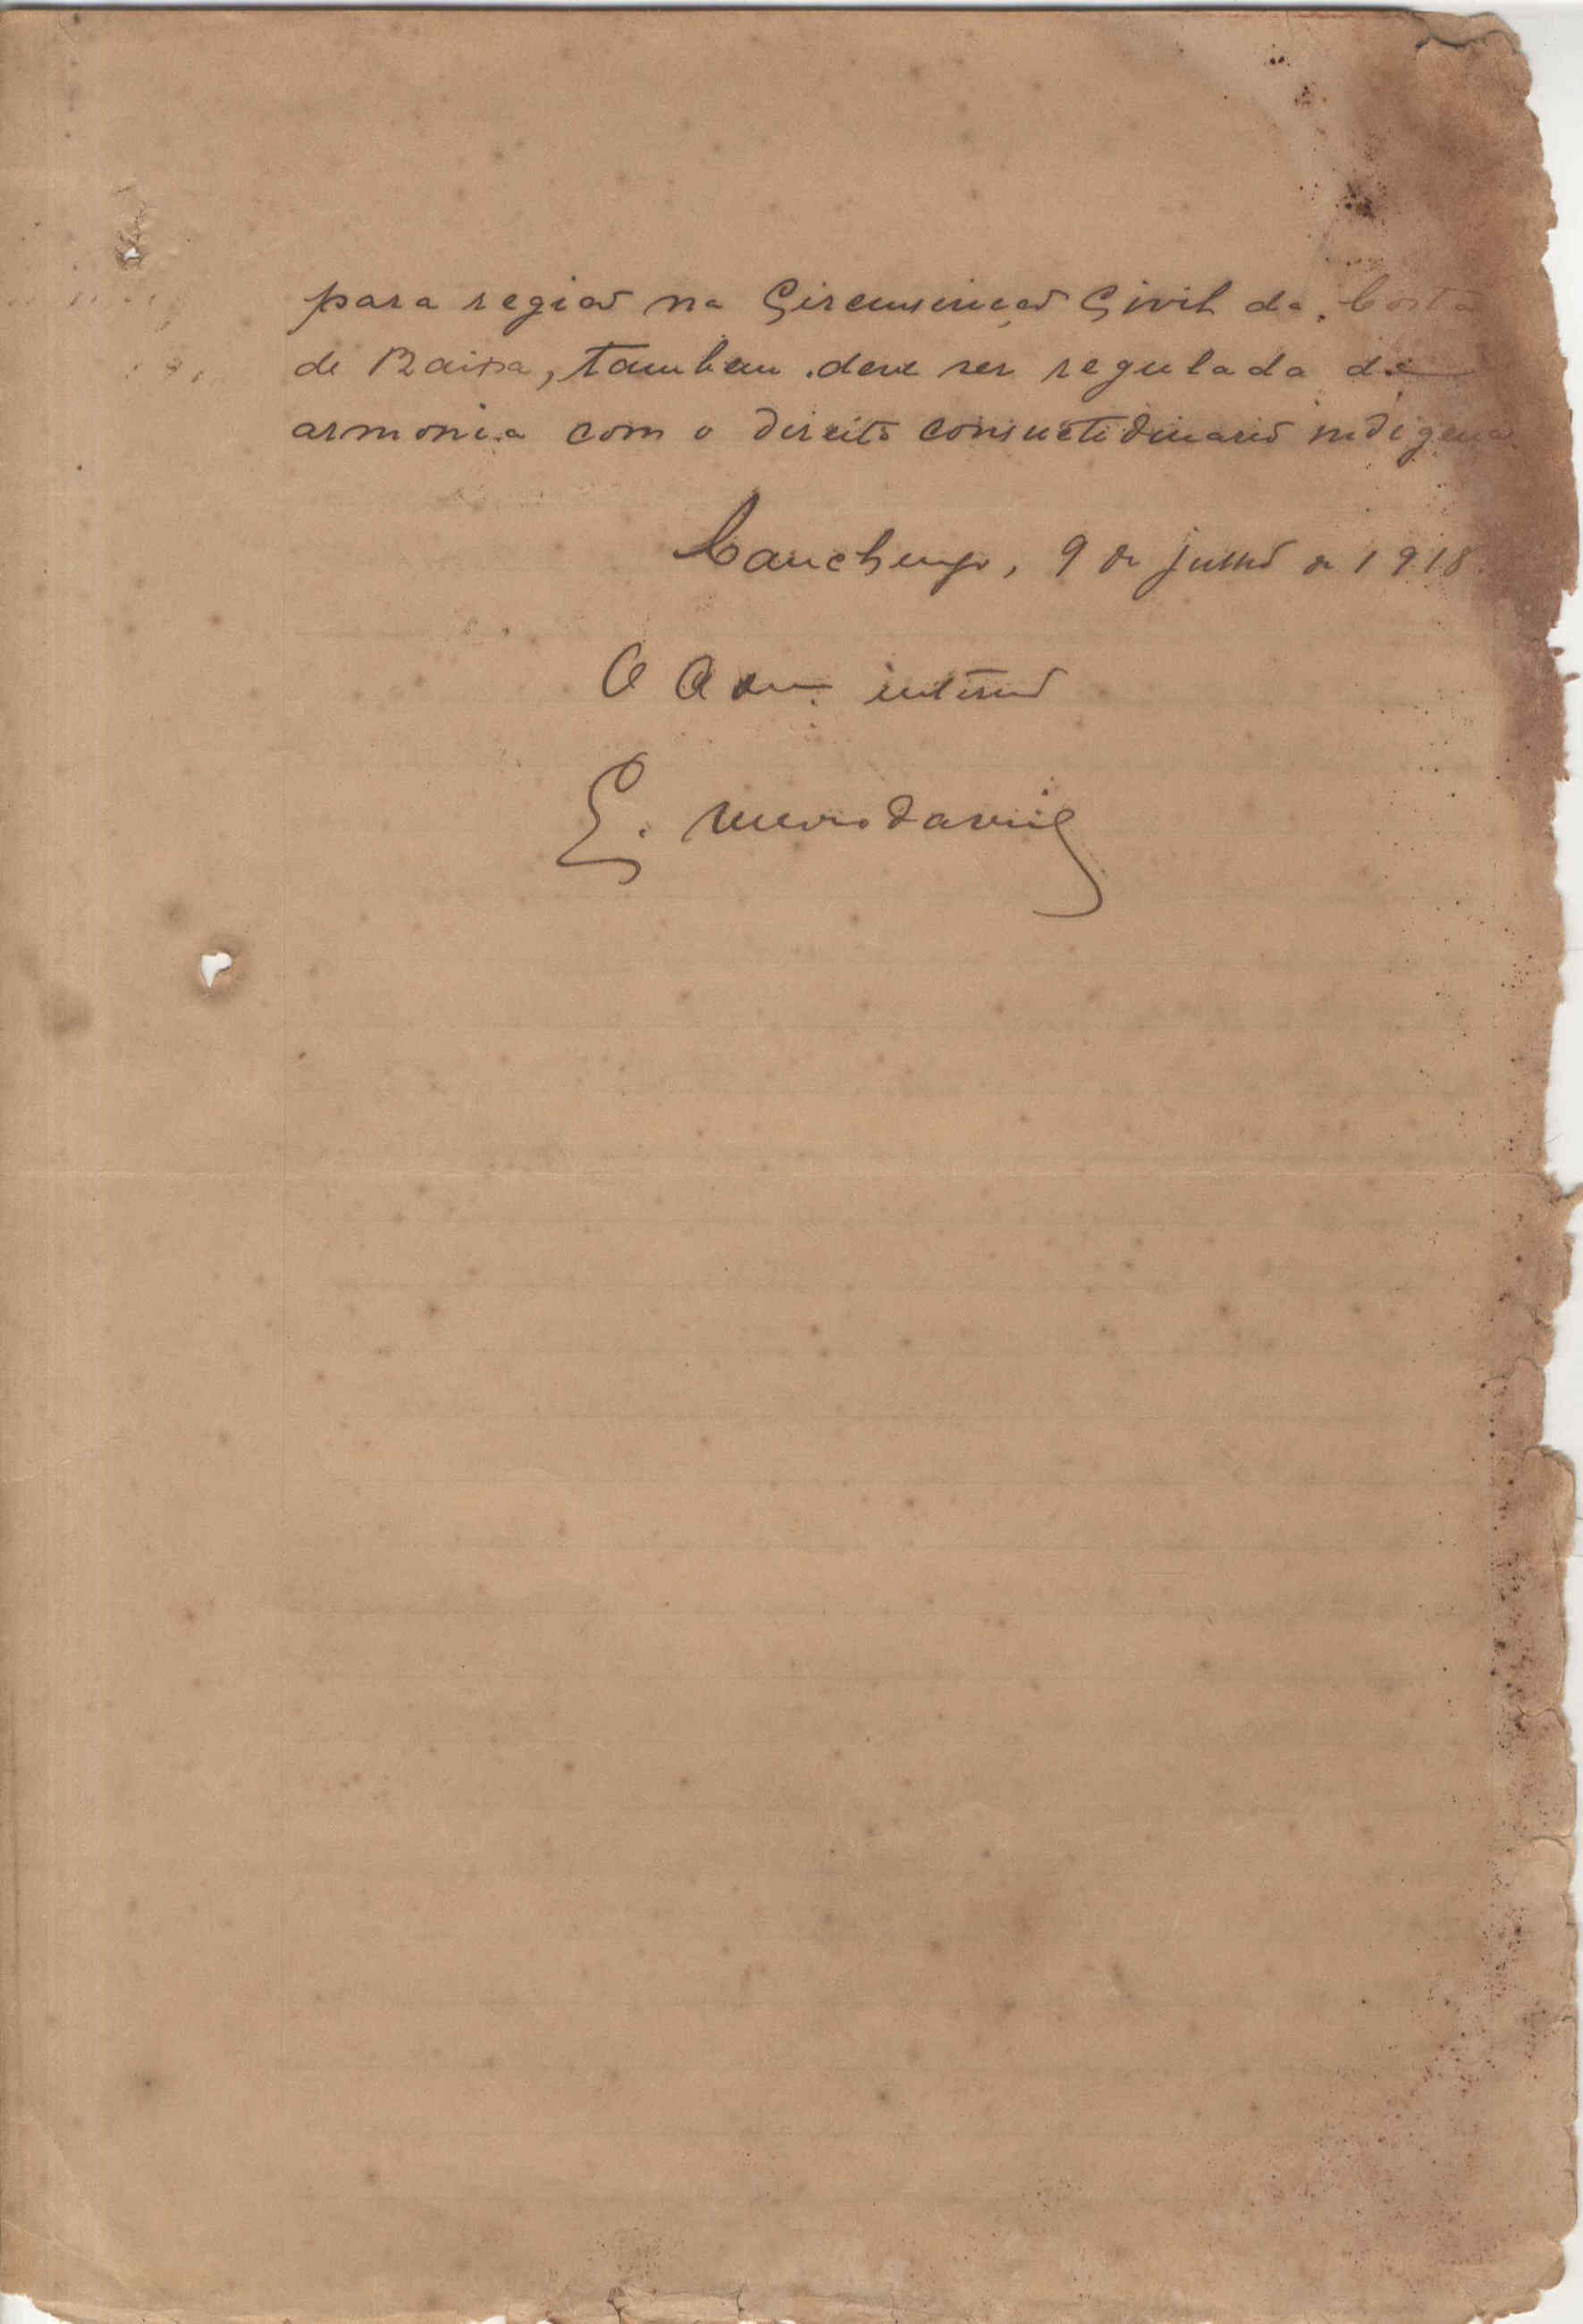 para região na Circunscrição Civil da Costa
de Baixo, tambem deve ser regulada de
armonia com o direito consuetudinario indigena
Canchungo, 9 de julho de 1918.
O Adm. interino
E.